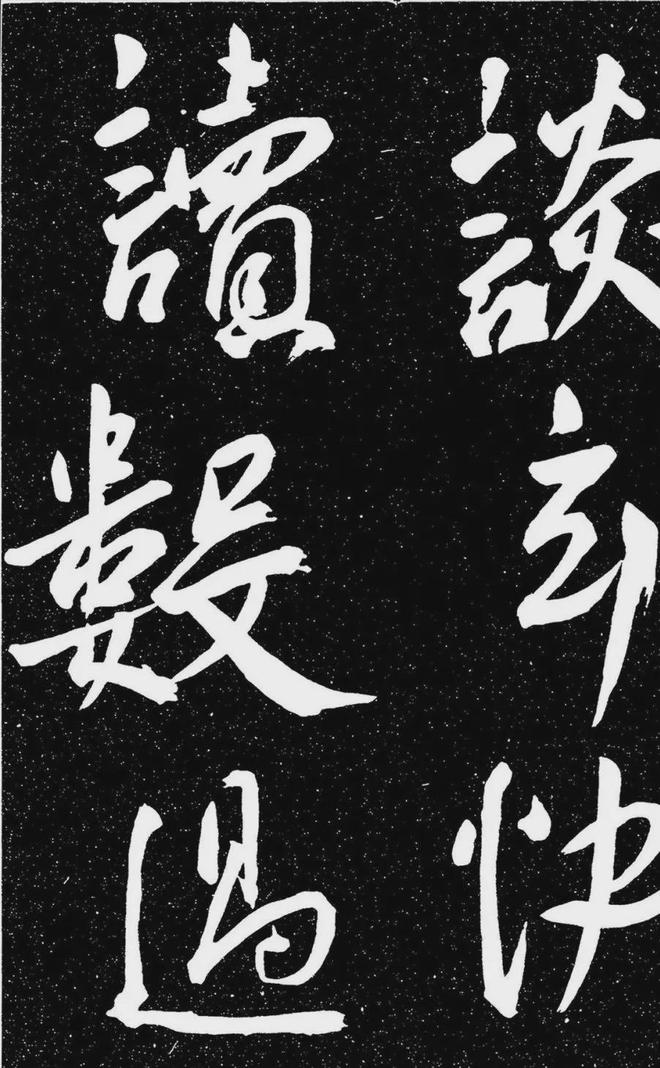 談快
讀數過